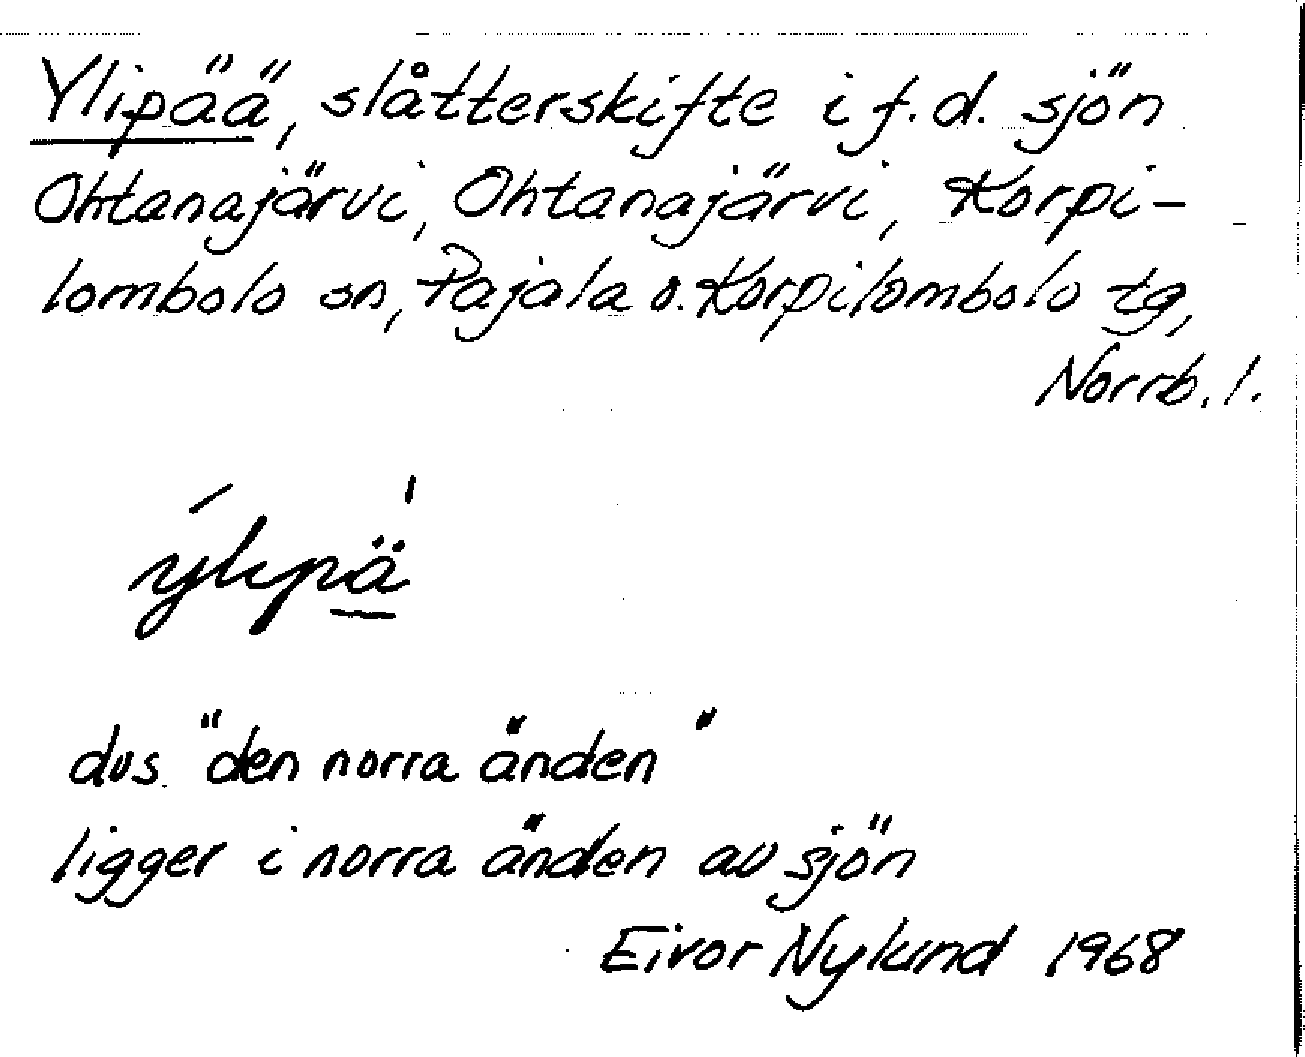 Ylipää, slåtterskifte i f.d. sjön
Ohtanajärvi, Ohtanajärvi, Korpi-
lombolo sn, Pajala o. Korpilombolo tg,
Norrb. l.
ýlıpä̱
dvs. "den norra änden"
ligger i norra änden av sjön
Eivor Nylund 1968